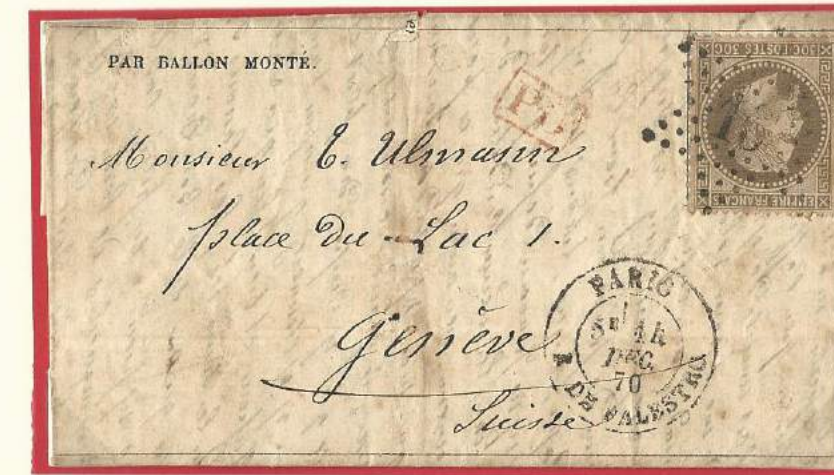 PAR BALLON MONTÉ.
PD
30C POSTES 30C
EMPIRE FRANÇAIS
Monsieur E. Ulmann
place du Lac 1.
Genève
Suisse
PARIS
DEC.
70
DE PALESTRO